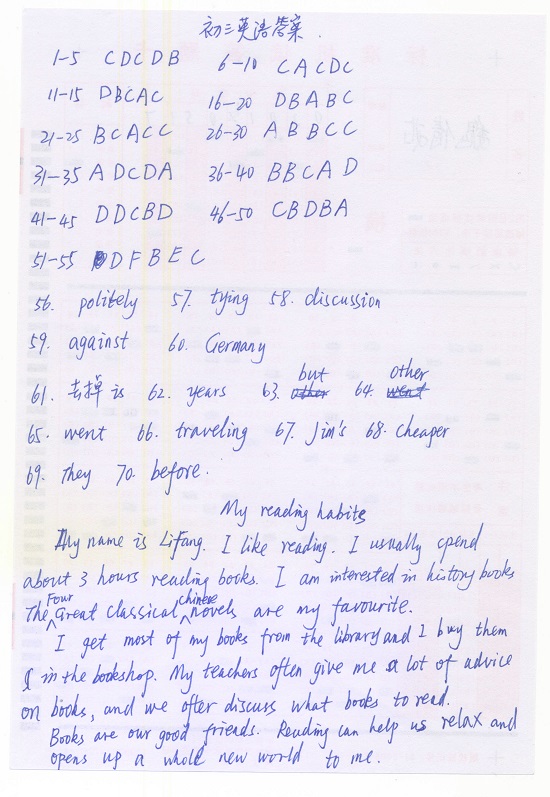 初三英语答案.
1-5 CDCDB 6-10 CACDC
11-15 DBCAC 16-20 DBABC
21-25 BCACC 26-30 ABBCC
31-35 ADCDA 36-40 BBCAD
41-45 DDCBD 46-50 CBDBA
51-55 DFBEC
56. politely 57. tying 58. discussion
59. against 60. Germany
but other
61. 去掉is 62. years 63. other 64. went
65. went 66. traveling 67. Jim's 68. cheaper
69. they 70. before.
My reading habits
My name is Lifang. I like reading. I usually spend
about 3 hours reading books. I am interested in history books
The Four Great classical chinese novels are my favourite.
I get most of my books from the library and I buy them
in the bookshop. My teachers often give me a lot of advice
on books, and we often discuss what books to read.
Books are our good friends. Reading can help us relax and
opens up a whole new world to me.